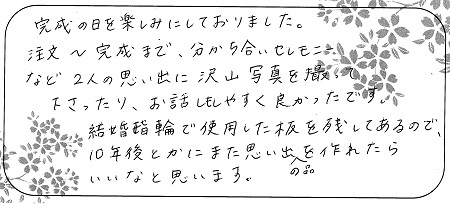 完成の日を楽しみにしておりました。
注文～完成まで、分から合いセレモニー
など 2人の思い出に 沢山 写真を撮って
下さったり、お話しもしやすく良かったです。
結婚指輪で使用した板を残してあるので、
10年後とかにまた思い出の品を作れたら
いいなと思います。